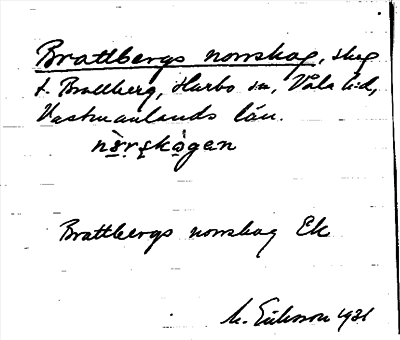 Brattbergs norrskog, skog
t. Brattberg, Harbo sn, Våla hd,
Västmanlands län.
nò̱rs̱kògan
Brattbergs norrskog Ek
M. Eriksson 1931